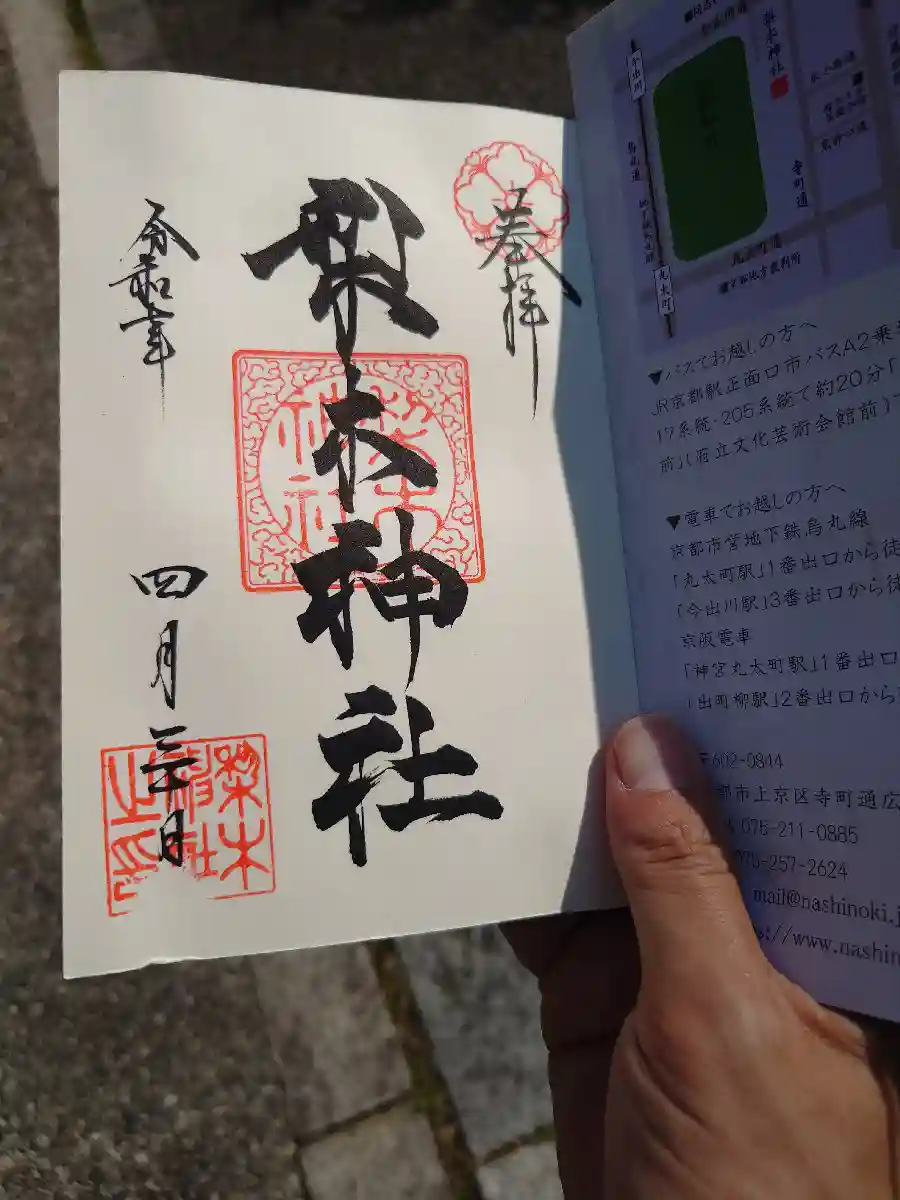 奉拝
梨木神社
令和
四月
梨木
神社
之印
梨木神社
今出川
烏丸通
寺町通
丸太町通
丸太町
▼バスでお越しの方へ
JR京都駅正面口市バスA2乗
17系統・205系統で約20分「
前」(府立文化芸術会館前)
▼電車でお越しの方へ
京都市営地下鉄烏丸線
「丸太町駅」1番出口から徒
「今出川駅」3番出口から徒
京阪電車
「神宮丸太町駅」1番出口
「出町柳駅」2番出口から
〒602-0844
都市上京区寺町通広
075-211-0885
075-257-2624
mail@nashinoki.j
://www.nashin